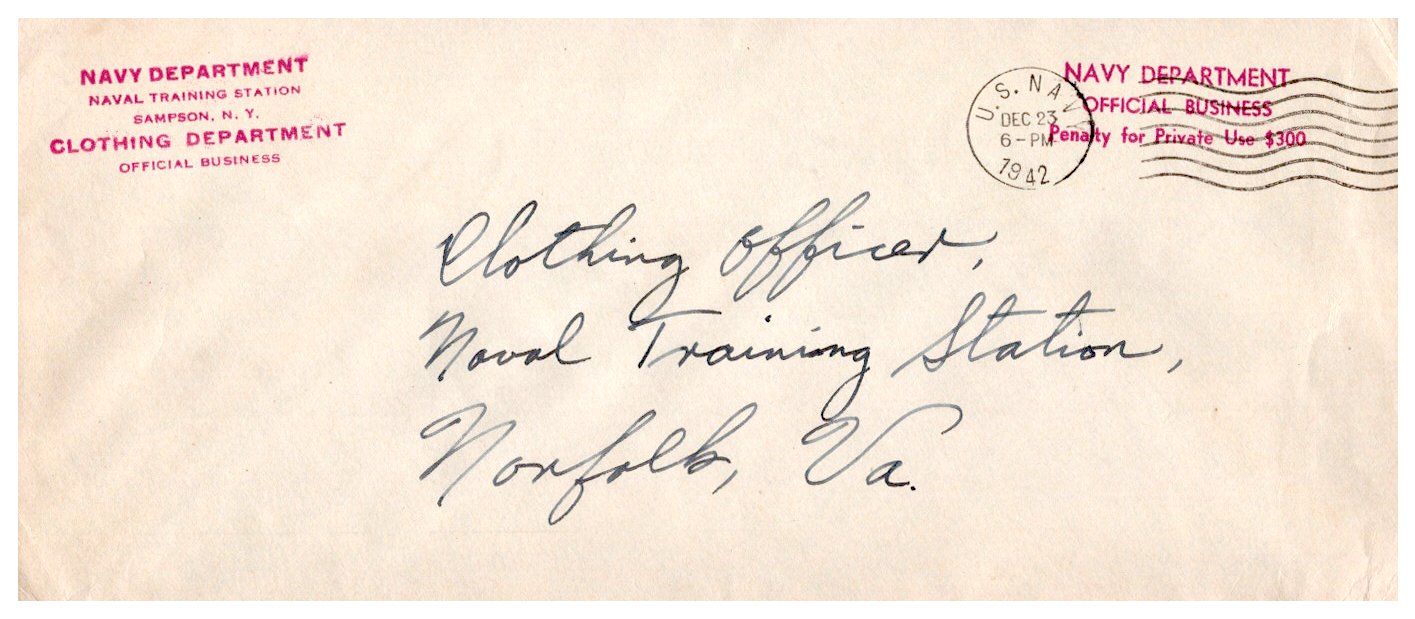 NAVY DEPARTMENT
NAVAL TRAINING STATION
SAMPSON, N. Y.
CLOTHING DEPARTMENT
OFFICIAL BUSINESS
U.S. NAVY
DEC 23
6-PM
1942
NAVY DEPARTMENT
OFFICIAL BUSINESS
Penalty for Private Use $300
Clothing Officer,
Naval Training Station,
Norfolk, Va.